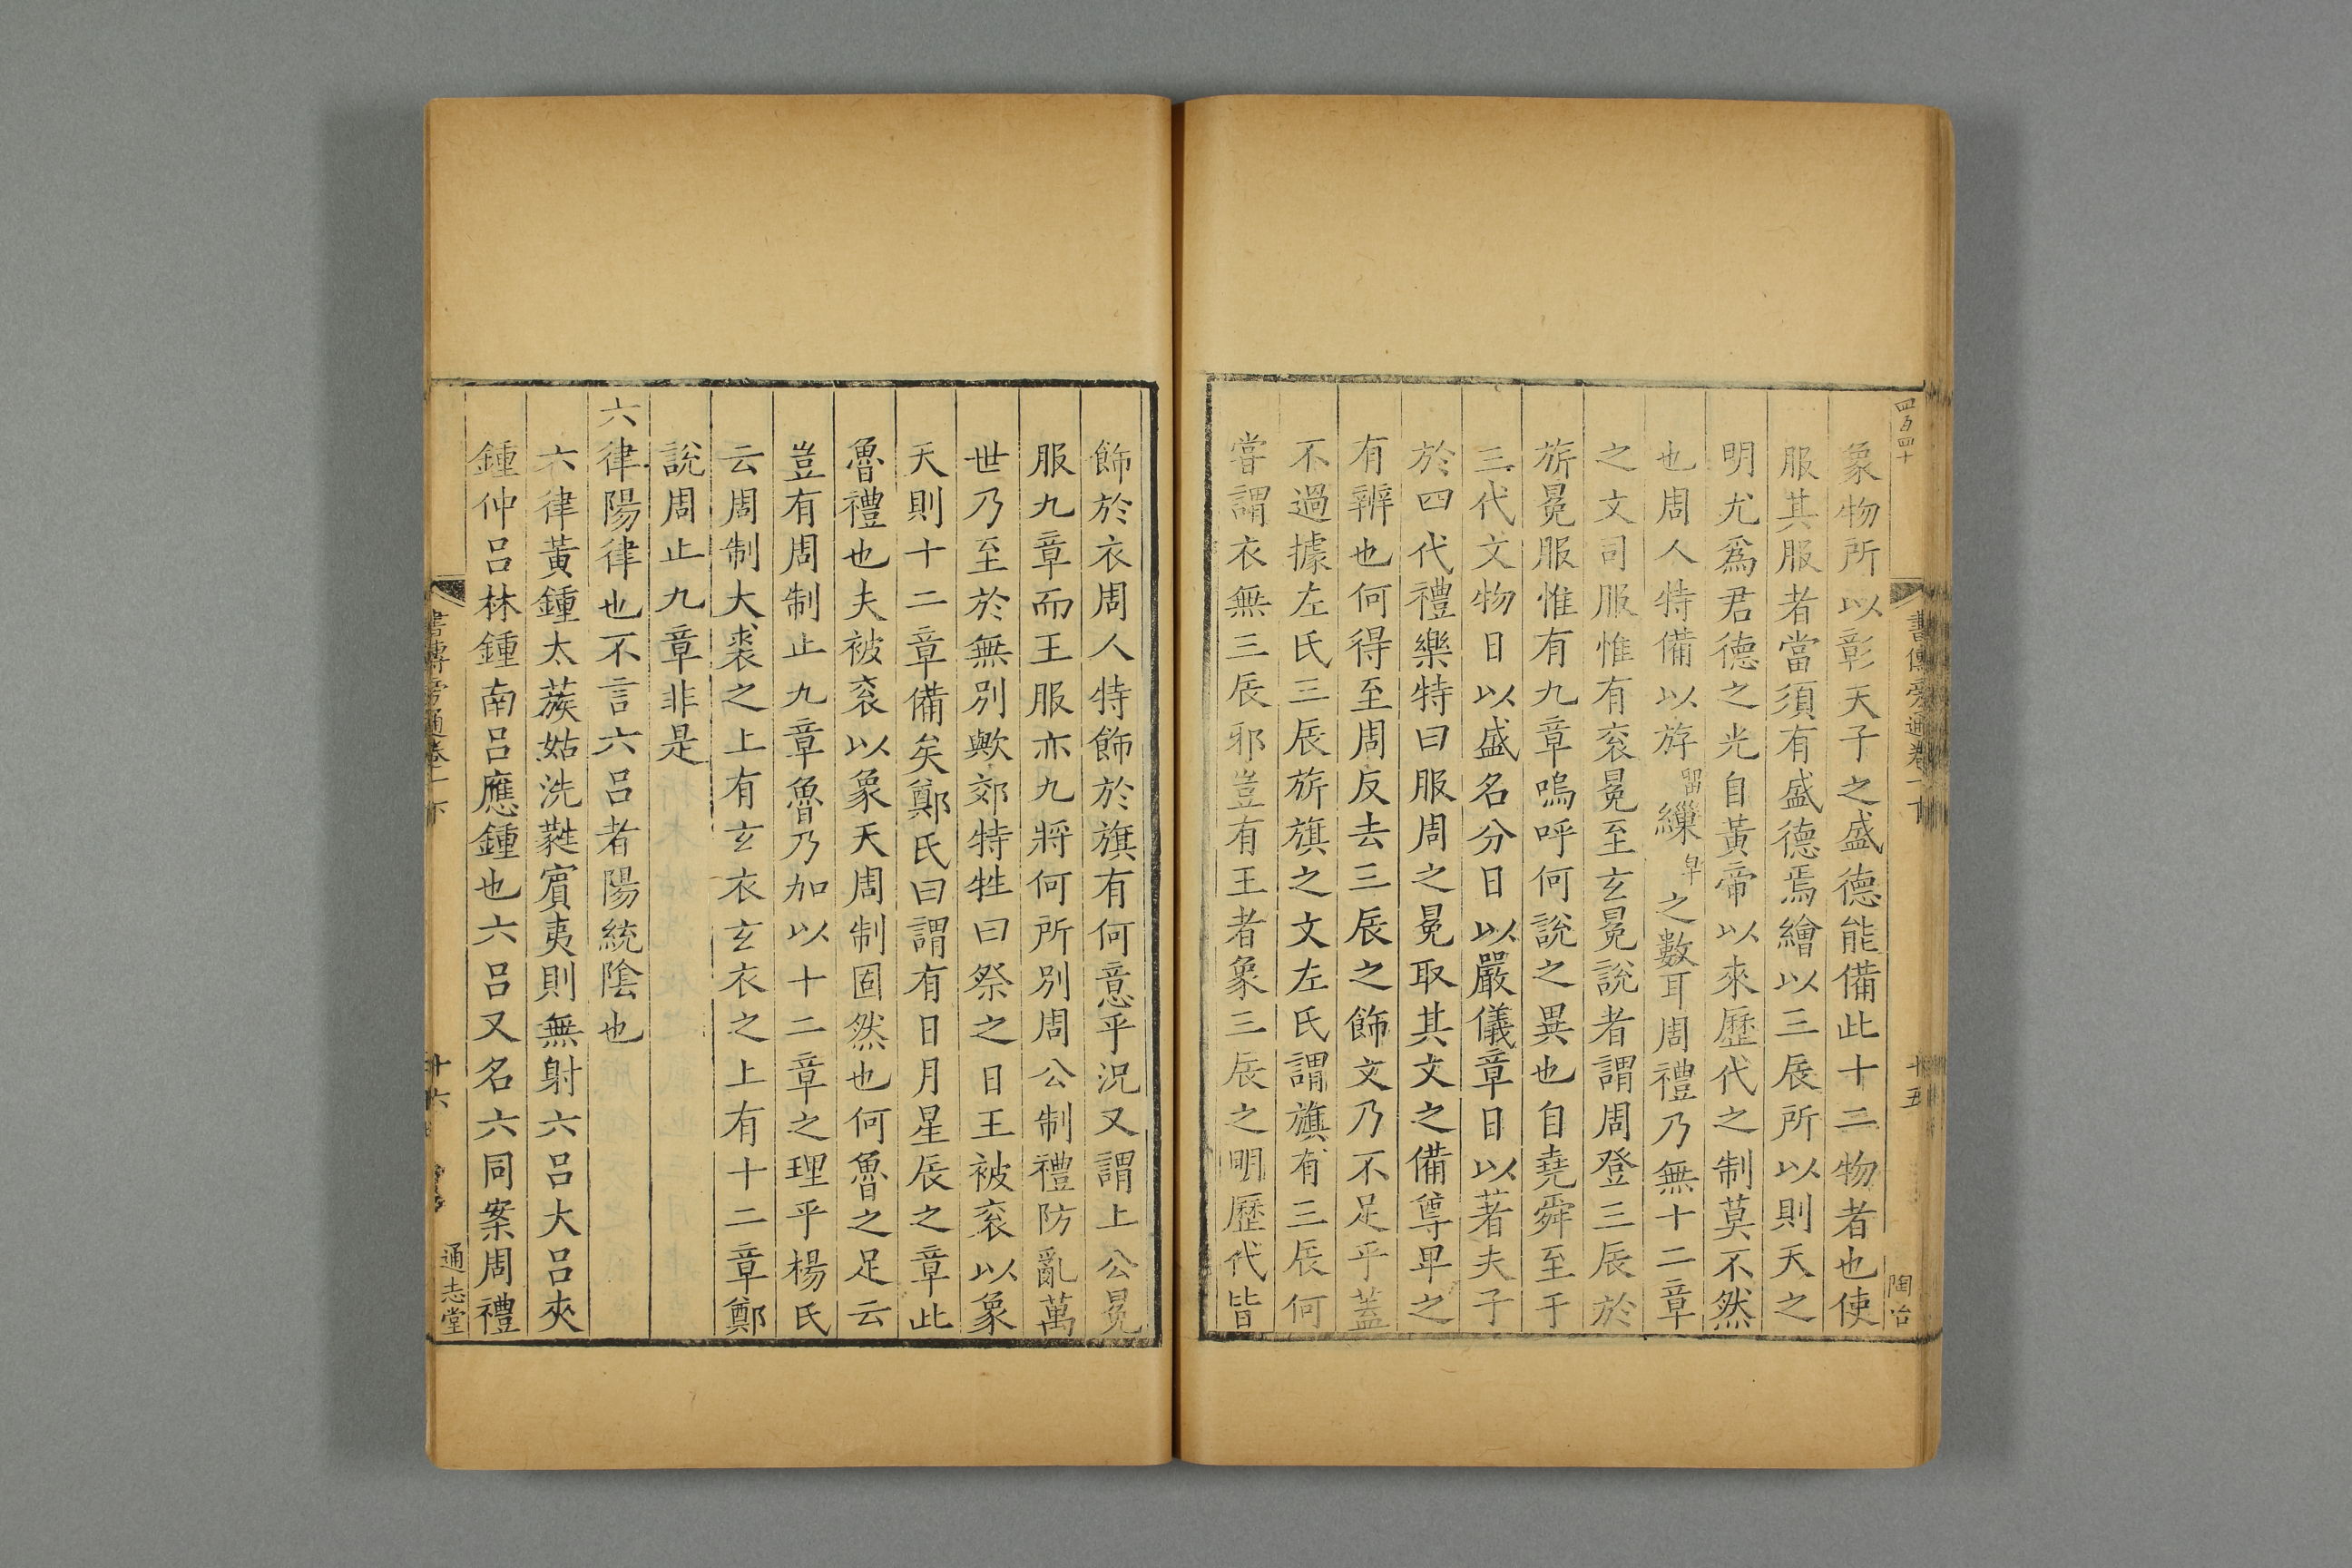 四百四十
書傳旁通卷一下
十五
陶冶
象物所以彰天子之盛德能備此十二物者也使
服其服者當須有盛德焉繪以三辰所以則天之
明尤爲君德之光自黃帝以來歷代之制莫不然
也周人特備以斿留繅早之數耳周禮乃無十二章
之文司服惟有衮冕至玄冕說者謂周登三辰於
旂冕服惟有九章嗚呼何說之異也自堯舜至于
三代文物日以盛名分日以嚴儀章日以著夫子
於四代禮樂特曰服周之冕取其文之備尊卑之
有辨也何得至周反去三辰之飾文乃不足乎蓋
不過據左氏三辰旂旗之文左氏謂旗有三辰何
嘗謂衣無三辰邪豈有王者象三辰之明歷代皆
飾於衣周人特飾於旗有何意乎況又謂上公冕
服九章而王服亦九將何所別周公制禮防亂萬
世乃至於無別歟郊特牲曰祭之日王被衮以象
天則十二章備矣鄭氏曰謂有日月星辰之章此
魯禮也夫被衮以象天周制固然也何魯之足云
豈有周制止九章魯乃加以十二章之理乎楊氏
云周制大裘之上有玄衣玄衣之上有十二章鄭
說周止九章非是
六律陽律也不言六呂者陽統陰也
六律黃鍾太蔟姑洗蕤賓夷則無射六呂大呂夾
鍾仲呂林鍾南呂應鍾也六呂又名六同案周禮
書傳旁通卷一下
十六
通志堂